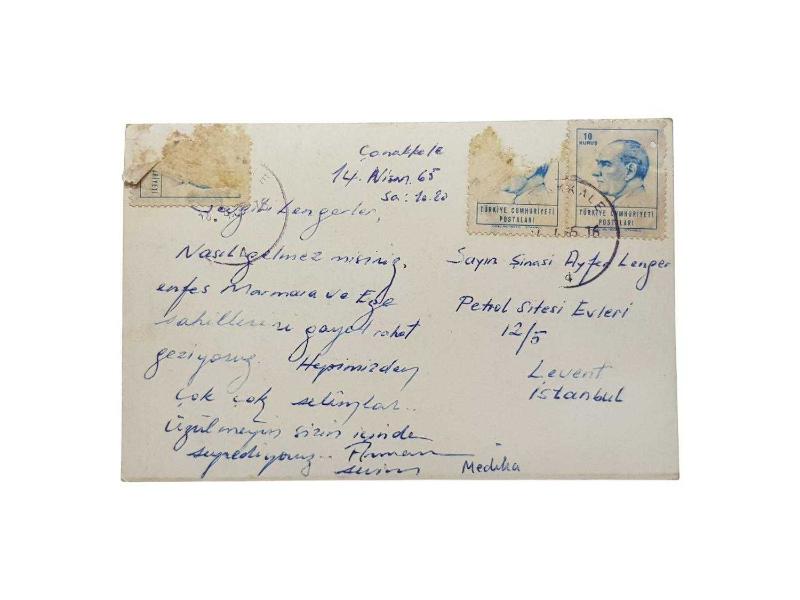 Çanakkale
14. Nisan. 65
Sa: 10.20
10
KURUŞ
TÜRKİYE CUMHURİYETİ
POSTALARI
TÜRKİYE CUMHURİYETİ
POSTALARI
KKALE
65 16
Sevgili Lengerler,
Nasıl gelmez misiniz,
enfes Marmara ve Ege
sahillerini gayet rahat
geziyoruz. Hepimizden
çok çok selâmlar..
Üzülmeyin sizin içinde
seyrediyoruz..
Sayın Şinasi Ayfer Lenger
Petrol Sitesi Evleri
12/5
Levent
İstanbul